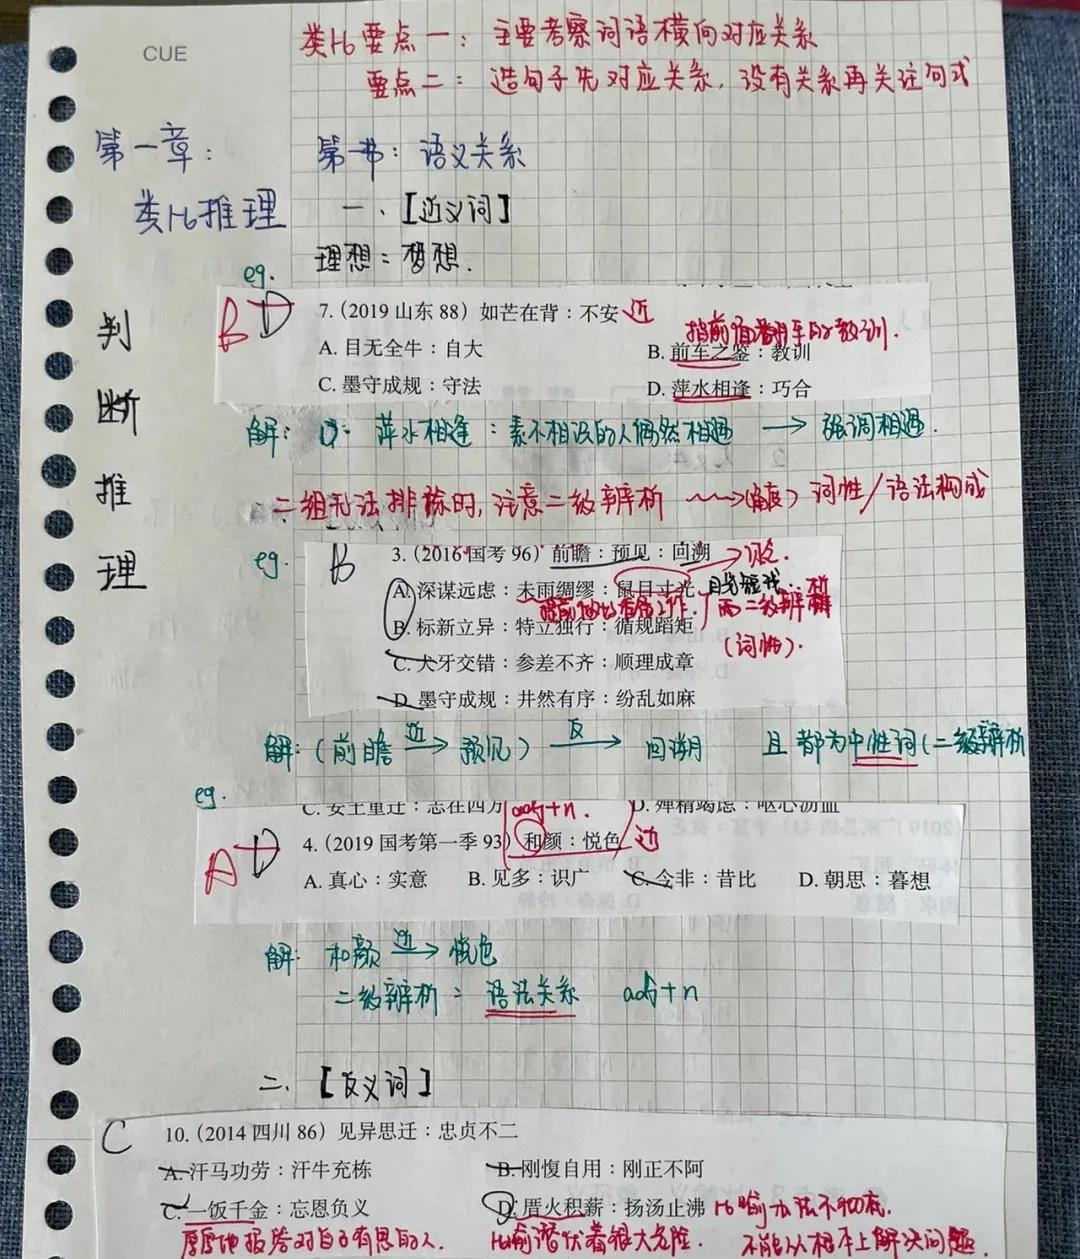 CUE
类比要点一：主要考察词语横向对应关系
要点二：造句子先对应关系，没有关系再关注句式
第一章：
第一节：语义关系
类比推理
一、【近义词】
理想：梦想.
判断推理
eg.
B D
7. (2019 山东 88) 如芒在背：不安 近
指前面翻车的教训.
A. 目无全牛：自大
B. 前车之鉴：教训
C. 墨守成规：守法
D. 萍水相逢：巧合
解：D：萍水相逢：素不相识的人偶然相遇 → 强调相遇.
二组无法排除时，注意二级辨析 → 词性/语法构成
eg.
B
3. (2016 国考 96) 前瞻：预见：回溯
A. 深谋远虑：未雨绸缪：鼠目寸光 目光短浅.
提前做好准备工作.
需二级辨析
B. 标新立异：特立独行：循规蹈矩
(词性).
C. 犬牙交错：参差不齐：顺理成章
D. 墨守成规：井然有序：纷乱如麻
解：(前瞻 近→ 预见) 反→ 回溯 且都为中性词(二级辨析
eg.
C. 安土重迁：志在四方
D. 殚精竭虑：呕心沥血
adj+n.
A D
4. (2019 国考第一季 93) 和颜：悦色 近
A. 真心：实意
B. 见多：识广
C. 今非：昔比
D. 朝思：暮想
解：和颜 近→ 悦色
二级辨析：语法关系 adj+n
二、【反义词】
C
10. (2014 四川 86) 见异思迁：忠贞不二
A. 汗马功劳：汗牛充栋
B. 刚愎自用：刚正不阿
C. 一饭千金：忘恩负义
D. 厝火积薪：扬汤止沸 比喻办法不彻底.
厚厚地报答对自己有恩的人.
比喻潜伏着很大危险.
不能从根本上解决问题